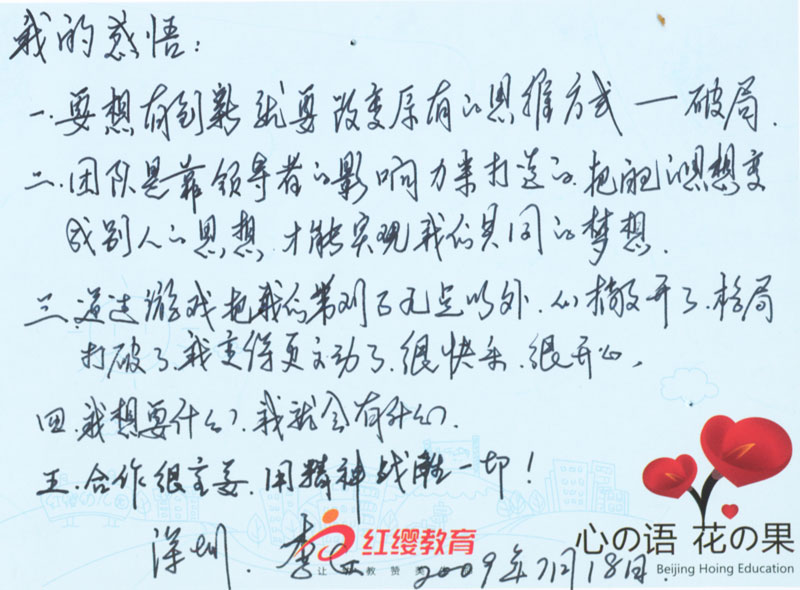 我的感悟：
一.要想有创新就要改变原有的思维方式 — 破局.
二.团队是靠领导者的影响力来打造的.把自己的思想变
成别人的思想.才能实现我们共同的梦想.
三.通过游戏把我们带到了九点以外.心放开了.格局
打破了.我变得更主动了.很快乐.很开心.
四.我想要什么.我就会有什么.
五.合作很重要.用精神战胜一切！
深圳.李
红缨教育
2009年7月18日.
心の语 花の果
Beijing Hoing Education